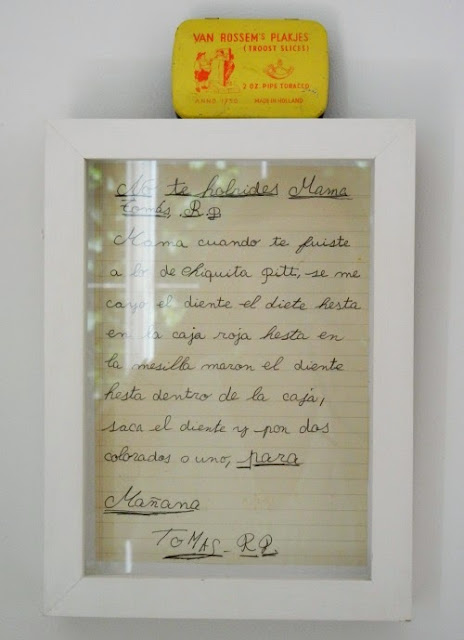 VAN ROSSEM'S PLAKJES
(TROOST SLICES)
2 OZ. PIPE TOBACCO
ANNO 1750 MADE IN HOLLAND
No te holvides Mama
Tomás R.P.
Mama cuando te fuiste
a lo de Chiquita Pitt, se me
cayo el diente el diete hesta
en la caja roja hesta en
la mesilla maron el diente
hesta dentro de la caja,
saca el diente y pon dos
colorados o uno, para
Mañana
TOMAS RP